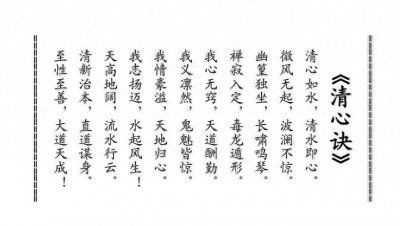 《清心诀》
清心如水，清水即心。
微风无起，波澜不惊。
幽篁独坐，长啸鸣琴。
禅寂入定，毒龙遁形。
我心无窍，天道酬勤。
我义凛然，鬼魅皆惊。
我情豪溢，天地归心。
我志扬迈，水起风生！
天高地阔，流水行云。
清新治本，直道谋身。
至性至善，大道天成！